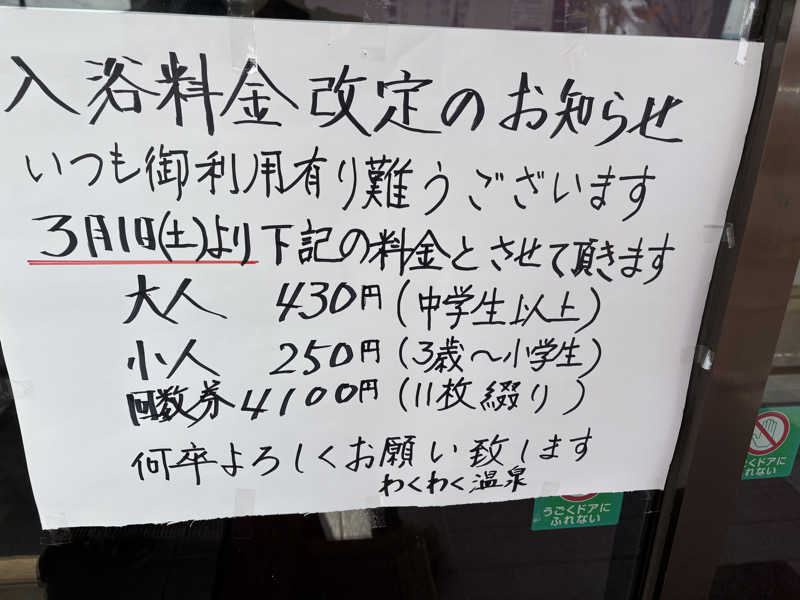 入浴料金改定のお知らせ
いつも御利用有り難うございます
3月1日(土)より下記の料金とさせて頂きます
大人 430円(中学生以上)
小人 250円(3歳～小学生)
回数券 4100円(11枚綴り)
何卒よろしくお願い致します
わくわく温泉
うごくドアに
ふれない
くドアに
れない